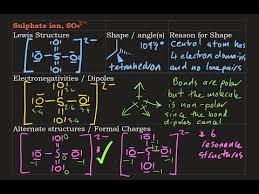 Sulphate ion, SO₄²⁻
Lewis Structure
Shape / angle(s)
Reason for Shape
2-
109½°
tetrahedron
Central atom has
4 electron domains
and no lone pairs
Electronegativities / Dipoles
2-
Bonds are polar
but the molecule
is non-polar
since the bond
dipoles cancel.
Alternate structures / Formal Charges
2-
2-
6
resonance
structures